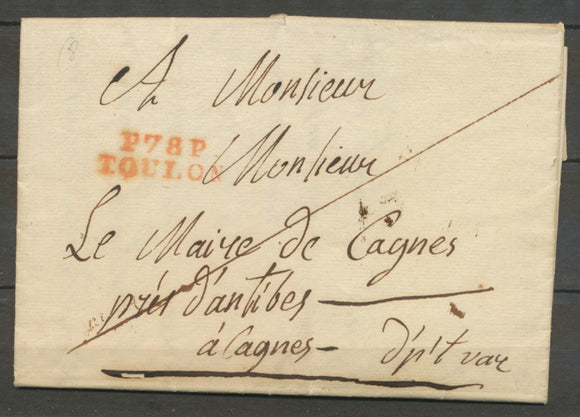 8
A Monsieur
P78P
TOULON
Monsieur
Le Maire de Cagnes
près d'antibes
à Cagnes - dp't var